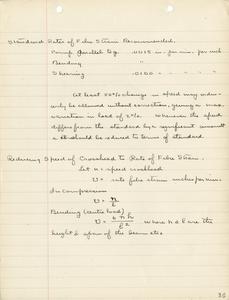 Standard Rates of Fibre Strain Recommended.
Comp. Parallel to g. .0015 in. per min. per inch
Bending "
Shearing .0100 " " " "
At least 25% change in speed may ordin-
arily be allowed without correction, giving a max.
variation in load of 2%. Wherever the speed
differs from the standard by a significant amount
it should be reduced to terms of standard.
Reducing Speed of Crosshead to Rate of Fibre Strain.
Let n = speed crosshead
v = rate fibre strain inches per min.
In compression
v = n/l
Bending (centre load)
v = 6nh/l²
where h & l are the
height & span of the beam etc